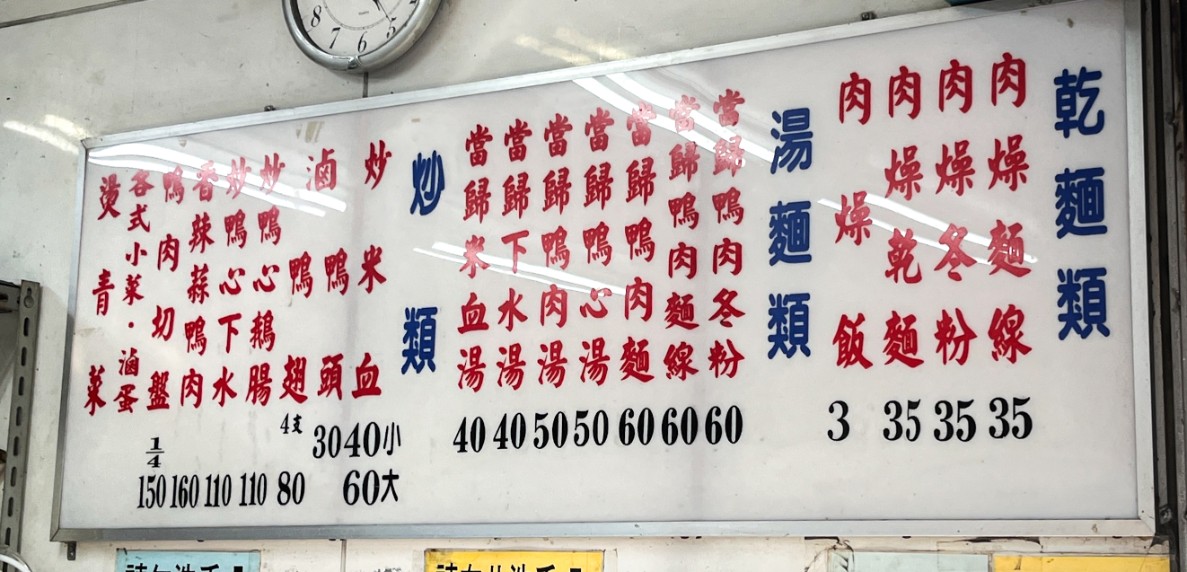 乾麵類
肉燥麵線 35
肉燥冬粉 35
肉燥乾麵 35
肉燥飯 3
湯麵類
當歸鴨肉冬粉 60
當歸鴨肉麵線 60
當歸鴨肉麵 60
當歸鴨心湯 50
當歸鴨肉湯 50
當歸下水湯 40
當歸米血湯 40
炒類
炒米血 40小 60大
滷鴨頭 30
鴨翅 4支 80
炒鴨心鵝腸 110
炒鴨心下水 110
香辣蒜鴨肉 160
鴨肉切盤 1/4 150
各式小菜·滷蛋
燙青菜